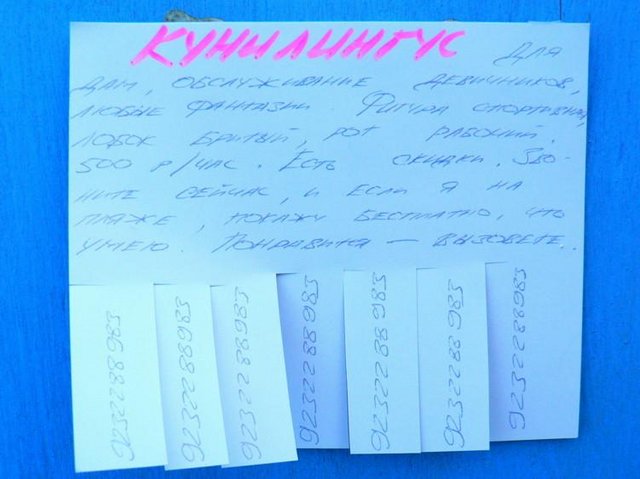 КУНИЛИНГУС ДЛЯ
ДАМ, ОБСЛУЖИВАНИЕ ДЕВИЧНИКОВ,
ЛЮБЫЕ ФАНТАЗИИ ФИГУРА СПОРТИВНАЯ,
ЛОБОК БРИТЫЙ, РОТ РАБОЧИЙ.
500 Р/ЧАС. ЕСТЬ СКИДКИ. ЗВО-
НИТЕ СЕЙЧАС, И ЕСЛИ Я НА
ПЛЯЖЕ, ПОКАЖУ БЕСПЛАТНО, ЧТО
УМЕЮ. ПОНРАВИТСЯ — ВЫЗОВЕТЕ.
92322 88983
92322 88983
92322 88983
92322 88983
92322 88983
92322 88983
92322 88983